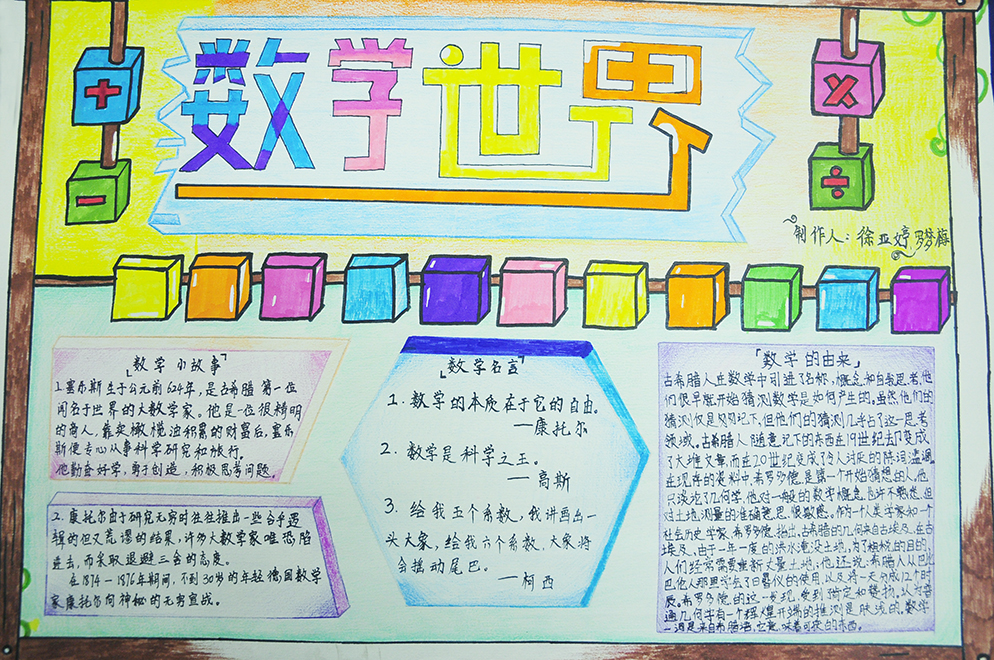 数学世界
+
-
×
÷
制作人：徐亚婷 罗梦梅
「数学小故事」
1.塞尔斯生于公元前624年，是古希腊第一位
闻名于世界的大数学家。他是一位很精明
的商人，靠卖橄榄油积累的财富后，塞尔
斯便专心从事科学研究和旅行。
他勤奋好学，勇于创造，积极思考问题。
2.康托尔由于研究无穷时往往推出一些合乎逻
辑的但又荒谬的结果，许多大数学家唯恐陷
进去，而采取退避三舍的态度。
在1874—1876年期间，不到30岁的年轻德国数学
家康托尔向神秘的无穷宣战。
「数学名言」
1.数学的本质在于它的自由。
—康托尔
2.数学是科学之王。
—高斯
3.给我五个系数，我讲画出一
头大象，给我六个系数，大象将
会摇动尾巴。
—柯西
「数学的由来」
古希腊人在数学中引进了名称，概念和自我思考，他
们很早就开始猜测数学是如何产生的。虽然他们的
猜测仅是匆匆记下，但他们的猜测几乎占了这一思考
领域。古希腊人随意记下的东西在19世纪去却变成
了大堆文章，而在20世纪变成了令人讨厌的陈词滥调。
在现存的资料中，希罗多德是第一个开始猜想的人。他
只谈论了几何学，他对一般的数学概念也许不熟悉，但
对土地测量的准确意思很敏感。作为一个人类学家和一个
社会历史学家，希罗多德指出，古希腊的几何来自古埃及，在古
埃及，由于一年一度的洪水淹没土地，为了租税的目的，
人们经常需要重新丈量土地；他还说：希腊人从巴比
伦人那里学会了日晷仪的使用，以及将一天分成12个时
辰。希罗多德的这一发现，受到肯定和赞扬。认为普
通几何学有一个辉煌开端的推测是肤浅的。数学